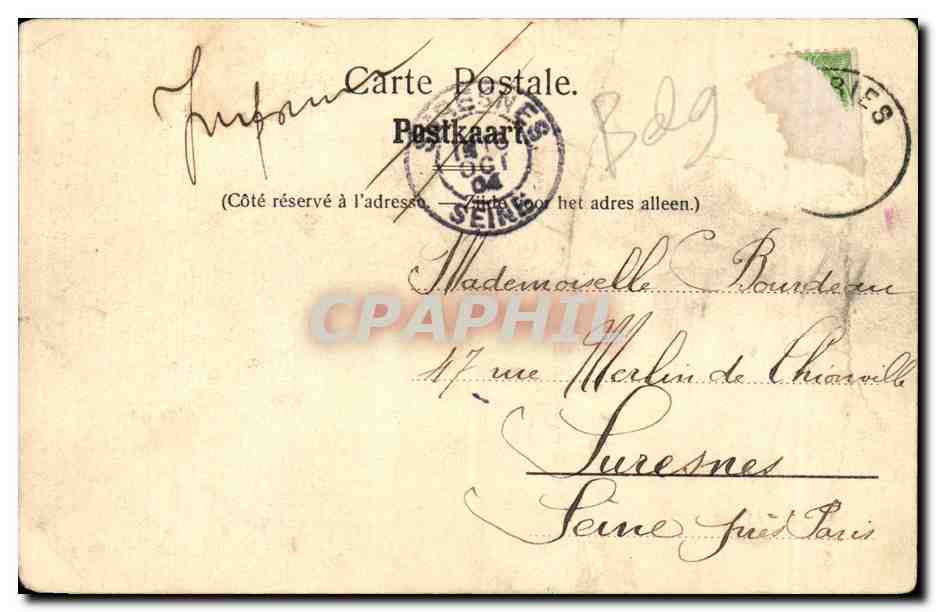 Carte Postale.
Postkaart
(Côté réservé à l'adresse. — Zijde voor het adres alleen.)
SURESNES
OCT
04
SEINE
RIES
Bdg
Mademoiselle Bourdeau
47 rue Merlin de Thionville
Suresnes
Seine près Paris
CPAPHIL